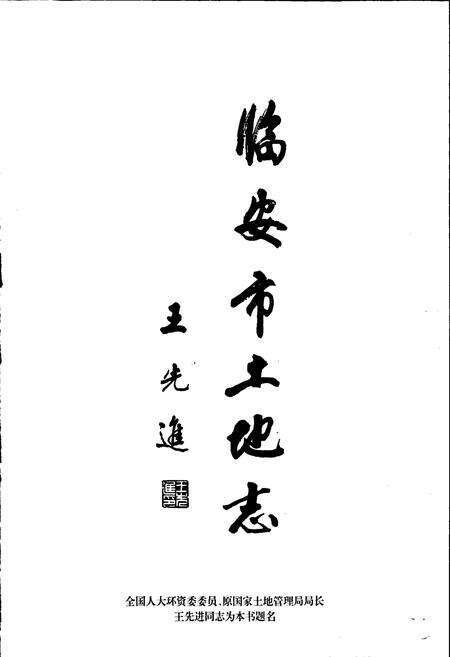 临安市土地志
王先進
全国人大环资委委员、原国家土地管理局局长
王先进同志为本书题名